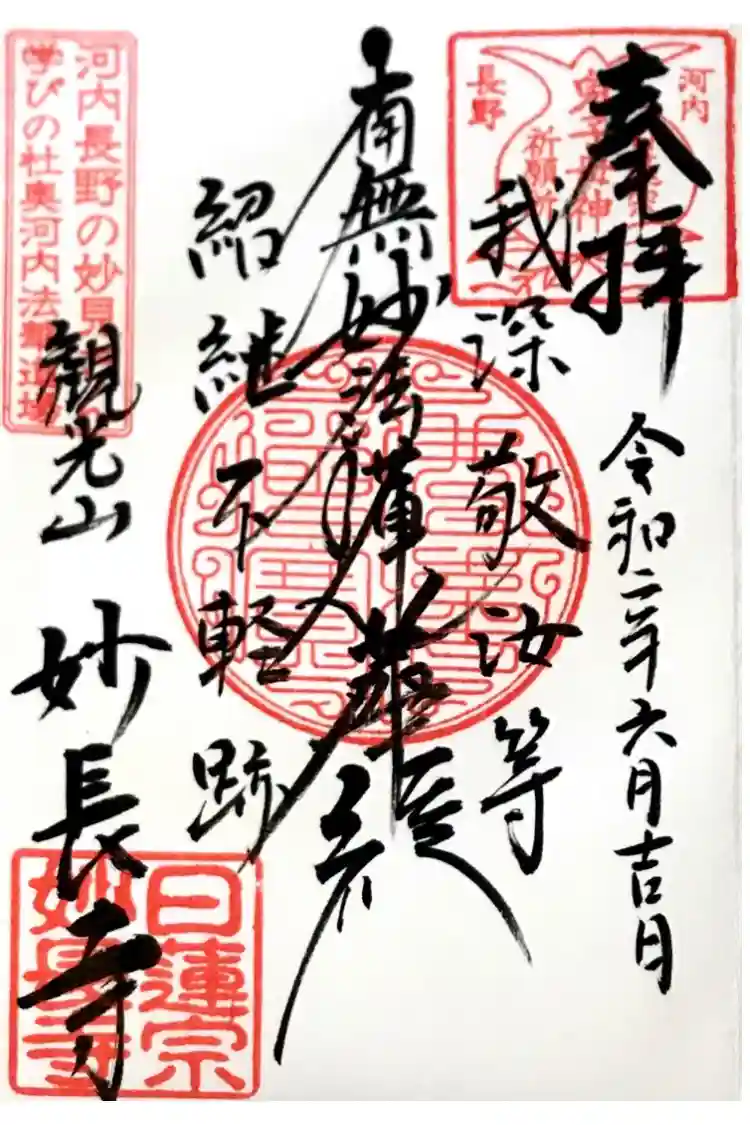 奉拝
河内
長野
鬼子母神
祈願所
令和二年六月吉日
我深敬汝等
南無妙法蓮華経
紹継不軽跡
河内長野の妙見
学びの杜奥河内法華道場
観光山
妙長寺
日蓮宗
妙長寺